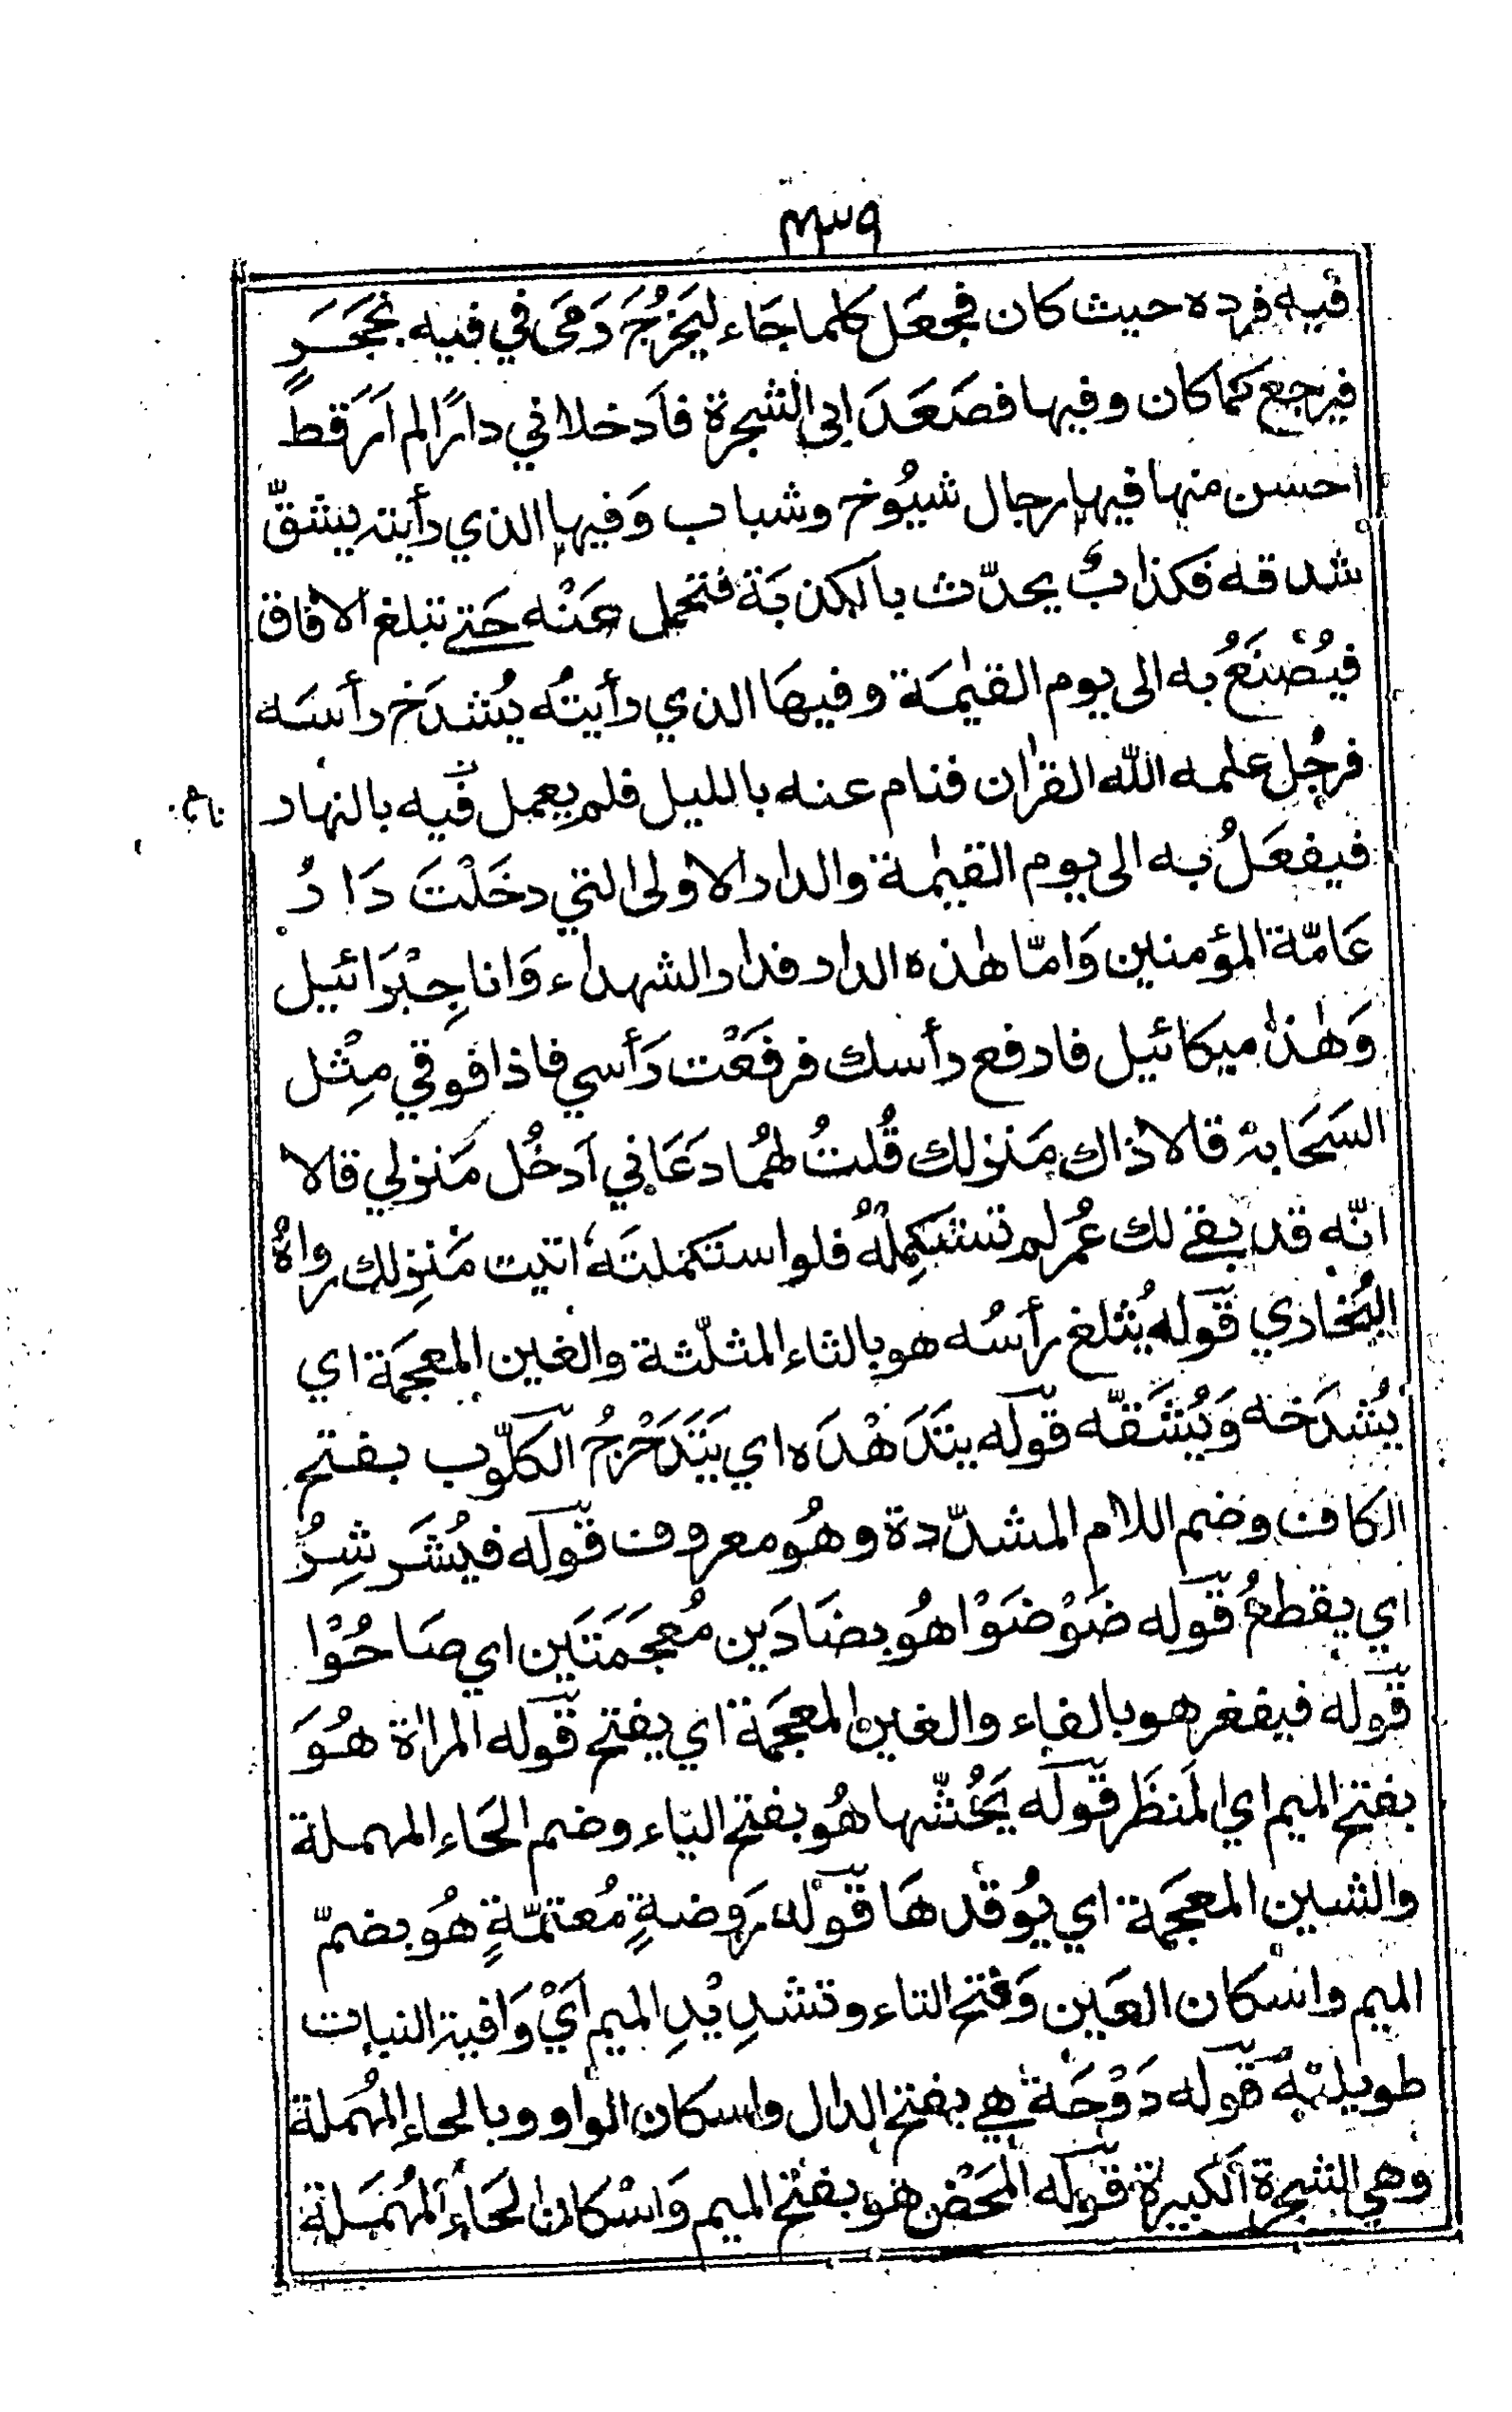 ٤٣٩
فيه فرده حيث كان فجعَل كلما جَاء ليَخرُجَ رَمَى في فيه بحَجَرٍ
فيرجع كما كان وفيها فصَعَدَ ابى الشجرة فاَدخلاني دارًا لم اَرَ قطّ
احسن منها فيها رجال شيُوخ وشباب وَفيها الذي رأيته يشقّ
شدقه فكذابٌ يحدّث بالكذبَة فتحمل عَنْه حَتى تبلغ الافاق
فيُصْنَعُ به الى يوم القيٰمَة وفيهَا الذي رأيتُه يُشدَخ رأسَه
فرجُل علمه الله القرٰان فنام عنه بالليل فلم يعمل فيه بالنهار
فيفعَلُ به الى يوم القيٰمة والدار الاولى التي دخَلْتَ دَارُ
عَامّة المؤمنين وَامّا هٰذه الدار فدار الشهداء وَانا جِبْرَائيل
وَهٰذا ميكائيل فارفع رأسك فرفَعْت رَأسي فاذا فوقي مِثْل
السَحَابة قالا ذاك مَنزلك قُلتُ لهُما دَعَاني اَدخُل مَنزلي قالا
انّه قد بقي لك عُمر لم تستكمِلْهُ فلو استكملتَه اتيت مَنزِلك رواهُ
البُخاري قوله يُثلغ رأسُه هو بالثاء المثلّثة والغين المعجمَة اي
يُشدَخه وَيُشَقّه قوله يتَدَهْدَه اي يَتَدَحْرَجُ الكلّوب بفتح
الكاف وضم اللام المشدّدة وهُو معروف قوله فيُشَرشِرُ
اي يقطعُ قوله ضَوْضَوْا هُو بضَادَين مُعجَمَتَين اي صَاحُوْا
قوله فيفغر هو بالفاء والغين المعجمَة اي يفتح قوله المراٰة هُوَ
بفتح الميم اي المَنظَر قوله يَحُشّها هُو بفتح اليَاء وضم الحَاء المهملة
والشين المعجَمة اي يُوقدهَا قوْله رَوضةٍ مُعتمّةٍ هُو بضمّ
الميم واسْكان العَين وَفتح التاء وتشدِيْدِ الميم اَيْ وَافية النبات
طويلته قوله دَوْحَة هي بفتح الدال واسكان الواو وبالحاء المُهملة
وهي الشجرة الكبيرة قوله المَحْض هو بفتْح الميم وَاسْكان الحَاء المُهمَلة